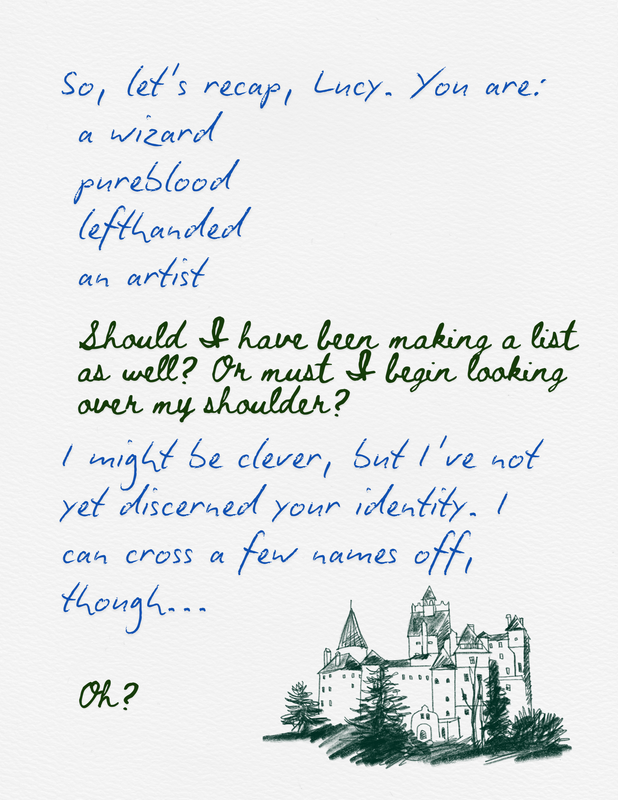 So, let's recap, Lucy. You are:
a wizard
pureblood
lefthanded
an artist
Should I have been making a list
as well? Or must I begin looking
over my shoulder?
I might be clever, but I've not
yet discerned your identity. I
can cross a few names off,
though...
Oh?